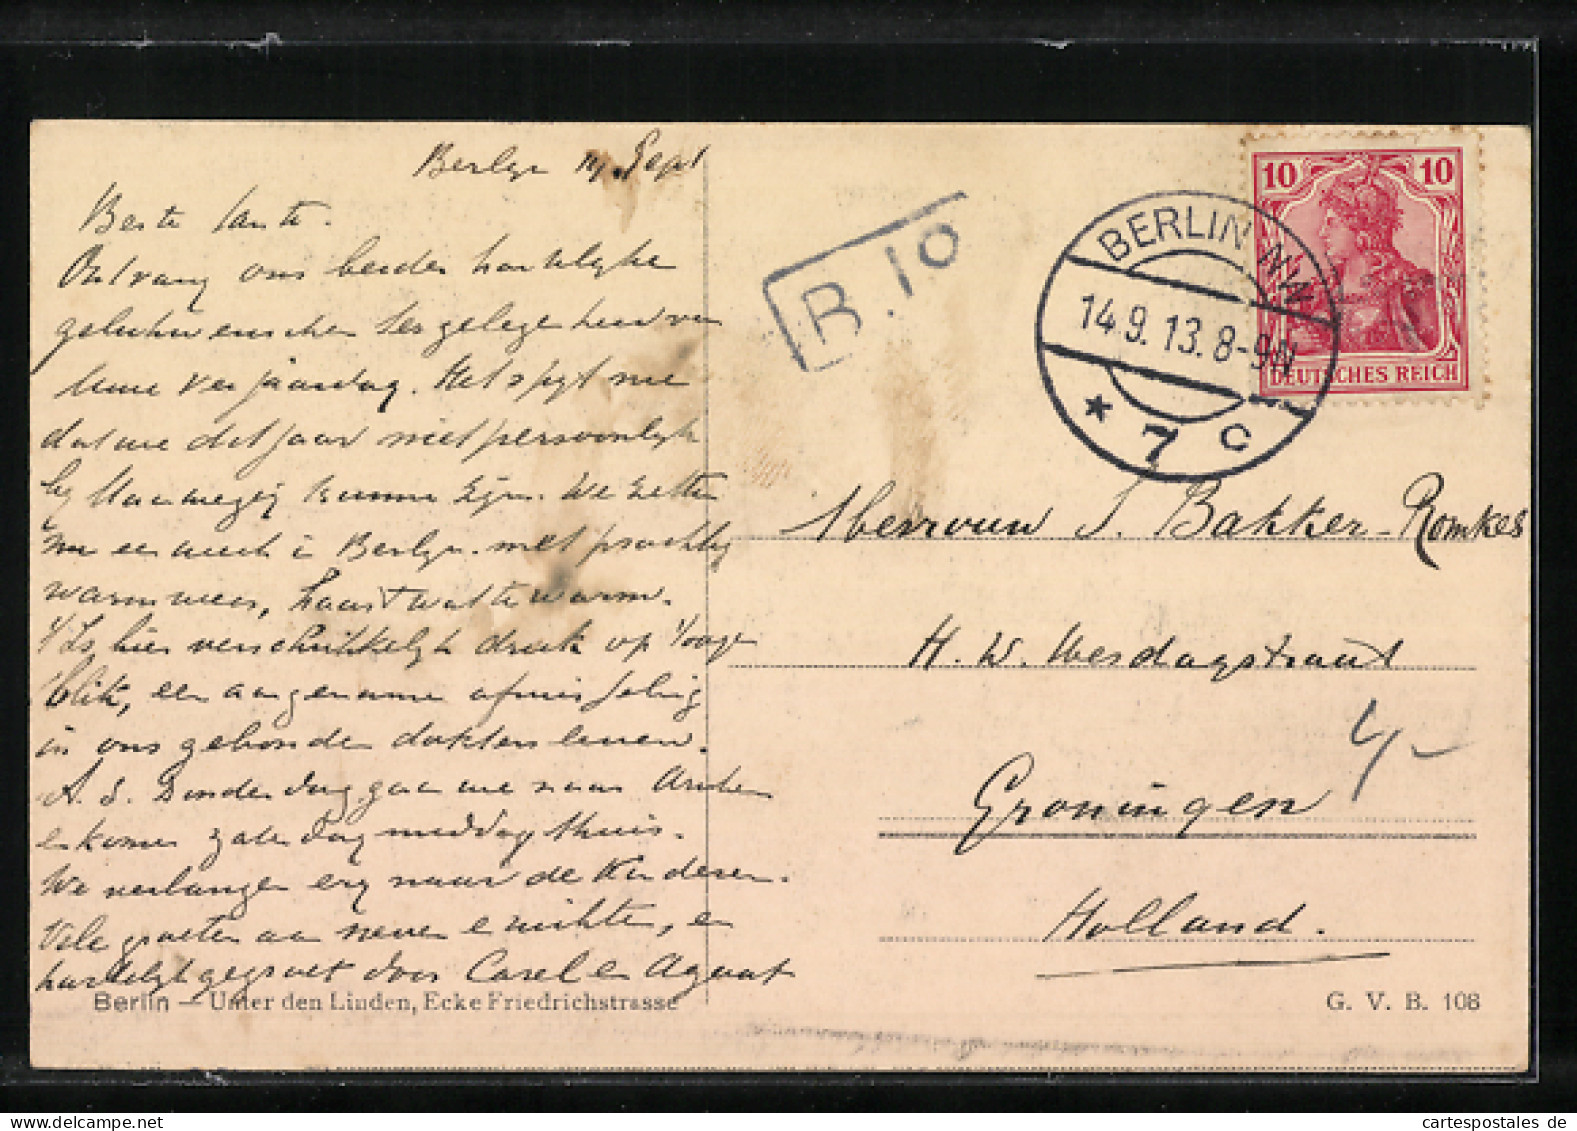 Berlijn 14 Sept
Beste Tante.
Ontvang ons beider hartelijke
gelukwenschen ter gelegenheid van
Uwe verjaardag. Het spijt me
dat we dit jaar niet persoonlijk
bij kunnen zijn. We zitten
nu een week in Berlijn. met prachtig
warm weer, haast wat te warm.
't Is hier verschrikkelijk druk op 't ooge
blik, een aangename afwisseling
in ons gebonden doktersleven.
A. S. Donderdag gaan we naar
en komen zaterdag middag thuis.
We verlangen erg naar de Kinderen.
Vele groeten aan neven en nichten, en
hartelijk gegroet door Carel en
Berlin — Unter den Linden, Ecke Friedrichstrasse
R. 10
BERLIN NW
14.9.13. 8-9N
* 7 c
10 10
DEUTSCHES REICH
Mevrouw S. Bakker-Romkes
H. W. Mesdagstraat
Groningen
Holland.
G. V. B. 108
cartespostales de